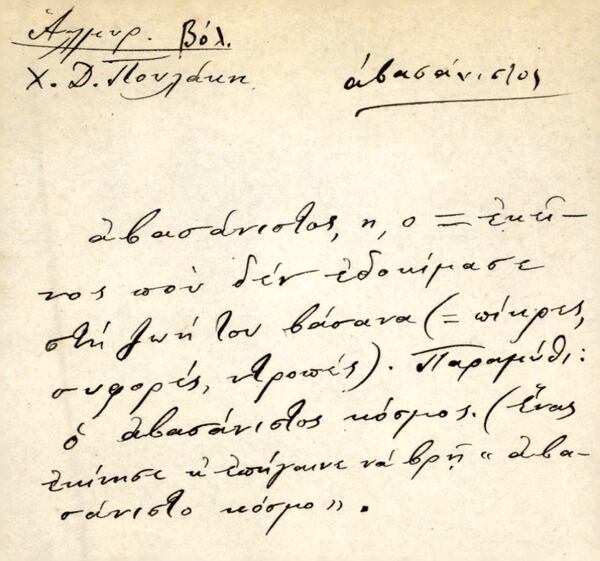 Ἁλμυρ. Βόλ.
Χ. Δ. Πουλάκη
ἀβασάνιστος
ἀβασάνιστος, η, ο = ἐκεῖ-
νος ποὺ δέν ἐδοκίμασε
στή ζωή του βάσανα (= πίκρες,
συφορές, ντροπές). Παραμύθι:
ὁ ἀβασάνιστος κόσμος. (ἕνας
ἐκίνησε κ' ἐπήγαινε νά βρῇ « ἀβα-
σάνιστο κόσμο ».